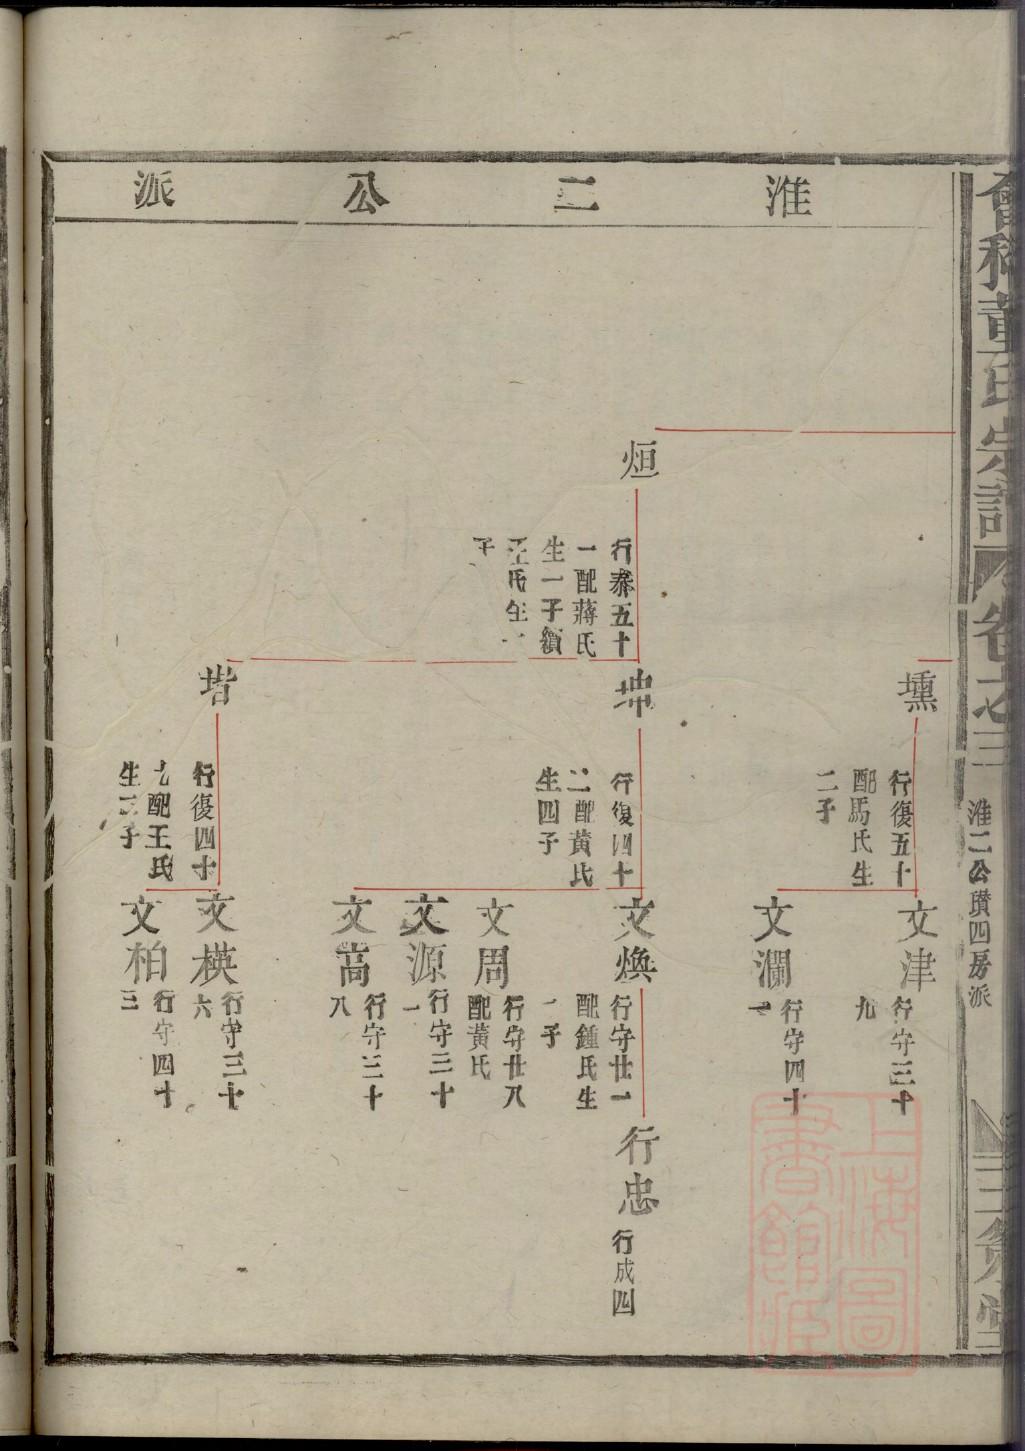 會稽董氏宗譜
卷之三
淮二公瓚四房派
淮二公派
壎
行復五十
配馬氏生
二子
文津
行守三十
九
文瀾
行守四十
烜
行泰五十
一配蔣氏
生一子續
王氏生一
子
坤
行復四十
二配黃氏
生四子
文煥
行守廿一
配鍾氏生
一子
行忠
行成四
文周
行守廿八
配黃氏
文源
行守三十
一
文嵩
行守三十
八
堦
行復四十
七配王氏
生二子
文模
行守三十
六
文柏
行守四十
三
上海圖
書館藏